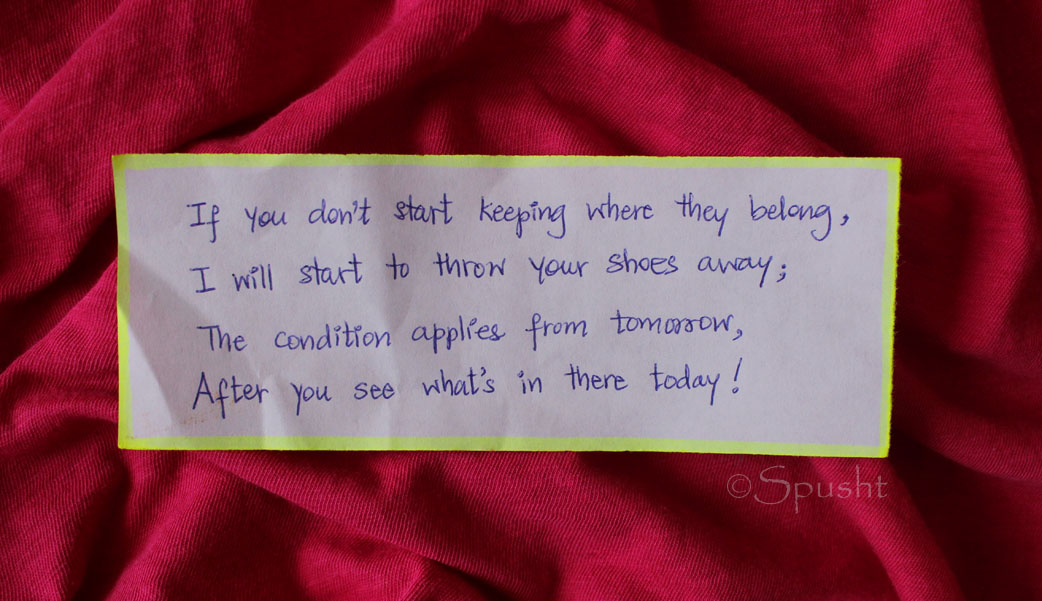 If you don't start keeping where they belong,
I will start to throw your shoes away;
The condition applies from tomorrow,
After you see what's in there today!
©Spusht